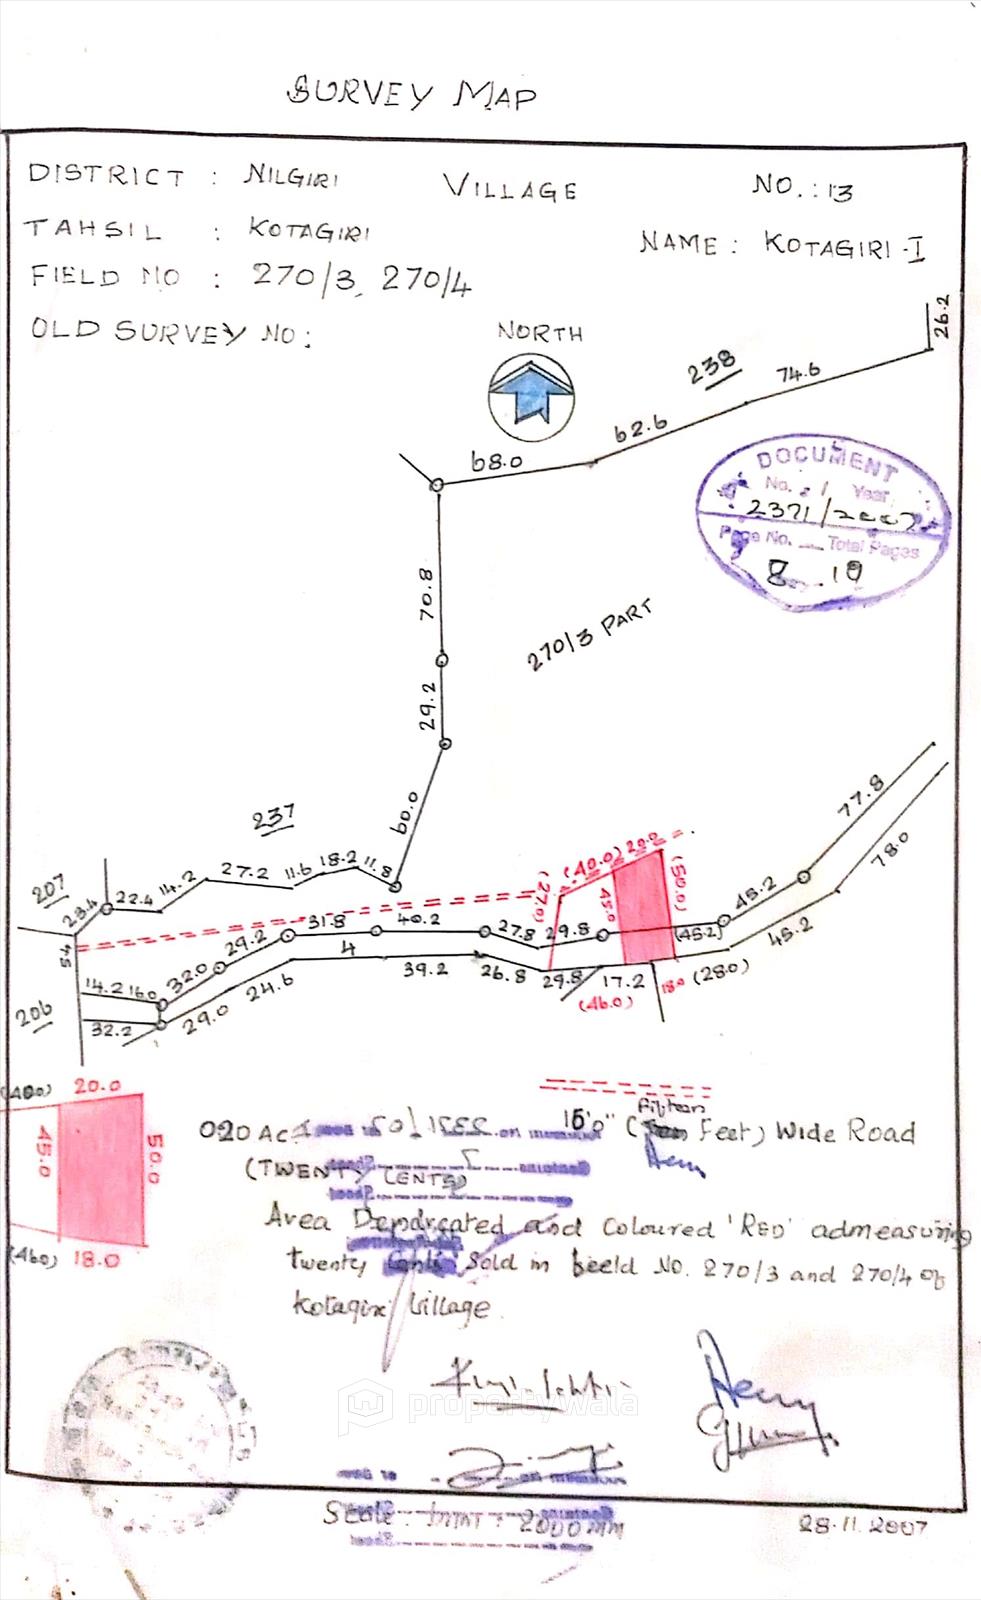 SURVEY MAP
DISTRICT : NILGIRI
VILLAGE
NO. : 13
TAHSIL : KOTAGIRI
NAME : KOTAGIRI - I
FIELD NO : 270/3, 270/4
OLD SURVEY NO :
NORTH
26.2
238
74.6
62.6
68.0
DOCUMENT
No. Year
2371/2007
Page No. Total Pages
8 19
70.8
270/3 PART
29.2
60.0
77.8
237
78.0
207
23.4
22.4
14.2
27.2
11.6
18.2
11.8
(27.0)
(40.0)
20.0
45.0
(50.0)
45.2
5.4
29.2
31.8
40.2
27.8
29.8
(45.2)
45.2
14.2
16.0
32.0
24.6
4
39.2
26.8
29.8
17.2
18.0
(28.0)
(46.0)
206
32.2
29.0
(400)
20.0
45.0
50.0
(460)
18.0
Fifteen
15'0" ( Feet) Wide Road
020 AC
(TWENTY CENTS)
Area Demarcated and Coloured 'RED' admeasuring
twenty Sold in feeld No. 270/3 and 270/4 of
Kotagiri Village
propertywala
Scale : 2000 MM
28.11.2007